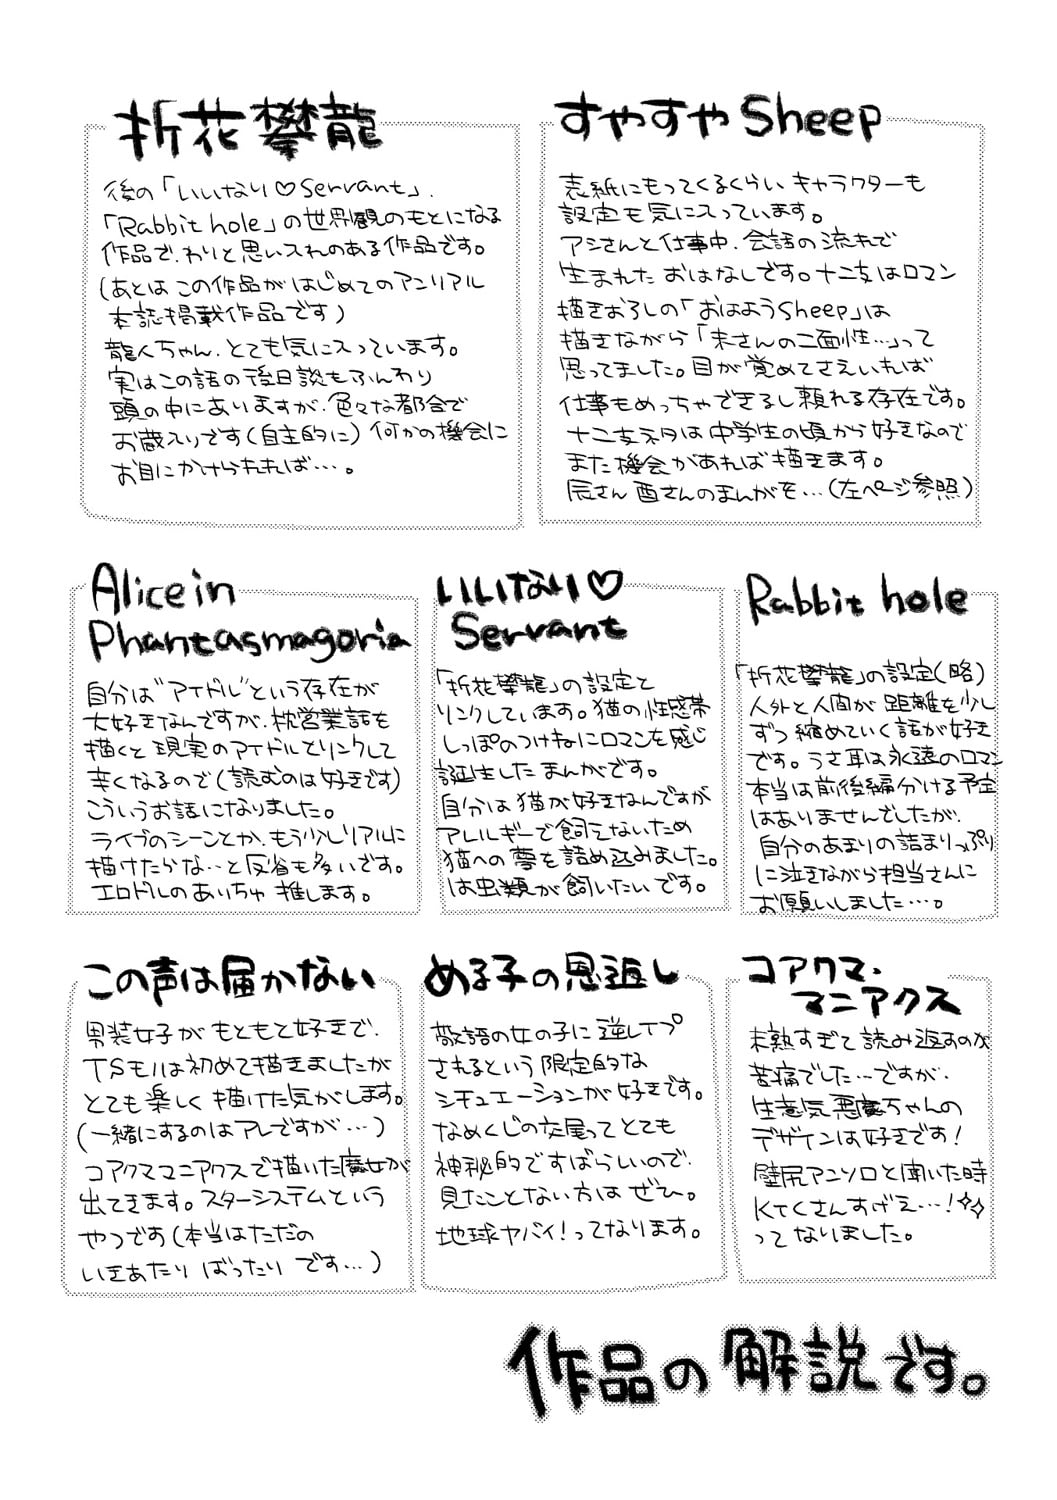 折花攀龍
後の「いいなり♡Servant」.
「Rabbit hole」の世界観のもとになる
作品で、わりと思い入れのある作品です。
(あとは この作品がはじめてのアンリアル
本誌掲載作品です)
龍人ちゃん、とても気に入っています。
実はこの話の後日談もふんわり
頭の中にありますが、色々な都合で
お蔵入りです(自主的に) 何かの機会に
お目にかけられれば…。
すやすやSheep
表紙にもってくるくらい キャラクターも
設定も気に入っています。
アシさんと仕事中、会話の流れで
生まれた おはなしです。十二支はロマン
描きおろしの「おはようSheep」は
描きながら「未さんの二面性…」って
思ってました。目が覚めてさえいれば
仕事もめっちゃできるし頼れる存在です。
十二支ネタは中学生の頃から好きなので
また機会があれば描きます。
辰さん 酉さんのまんがを…(左ページ参照)
Alice in
Phantasmagoria
自分は"アイドル"という存在が
大好きなんですが、枕営業話を
描くと現実のアイドルとリンクして
辛くなるので(読むのは好きです)
こういうお話になりました。
ライブのシーンとか、もう少しリアルに
描けたらな…と反省も多いです。
エロドルのあいちゃ推します。
いいなり♡
Servant
「折花攀龍」の設定と
リンクしています。猫の性感帯
しっぽのつけねにロマンを感じ
誕生したまんがです。
自分は猫が好きなんですが
アレルギーで飼えないため
猫への夢を詰め込みました。
は虫類が飼いたいです。
Rabbit hole
「折花攀龍」の設定(略)
人外と人間が距離を少し
ずつ縮めていく話が好き
です。うさ耳は永遠のロマン
本当は前後編分ける予定
はありませんでしたが、
自分のあまりの詰まりっぷり
に泣きながら担当さんに
お願いしました…。
この声は届かない
男装女子がもともと好きで、
TSモノは初めて描きましたが
とても楽しく描けた気がします。
(一緒にするのはアレですが…)
コアクママニアクスで描いた魔女が
出てきます。スターシステムという
やつです(本当はただの
いきあたりばったりです…)
める子の恩返し
敬語の女の子に逆レイプ
されるという限定的な
シチュエーションが好きです。
なめくじの交尾ってとても
神秘的ですばらしいので、
見たことない方はぜひ。
地球ヤバイ!ってなります。
コアクマ・
マニアクス
未熟すぎて読み返すのが
苦痛でした…ですが、
生意気悪魔ちゃんの
デザインは好きです!
壁尻アンソロと聞いた時
KTCさんすげえ…!✧✧
ってなりました。
作品の解説です。